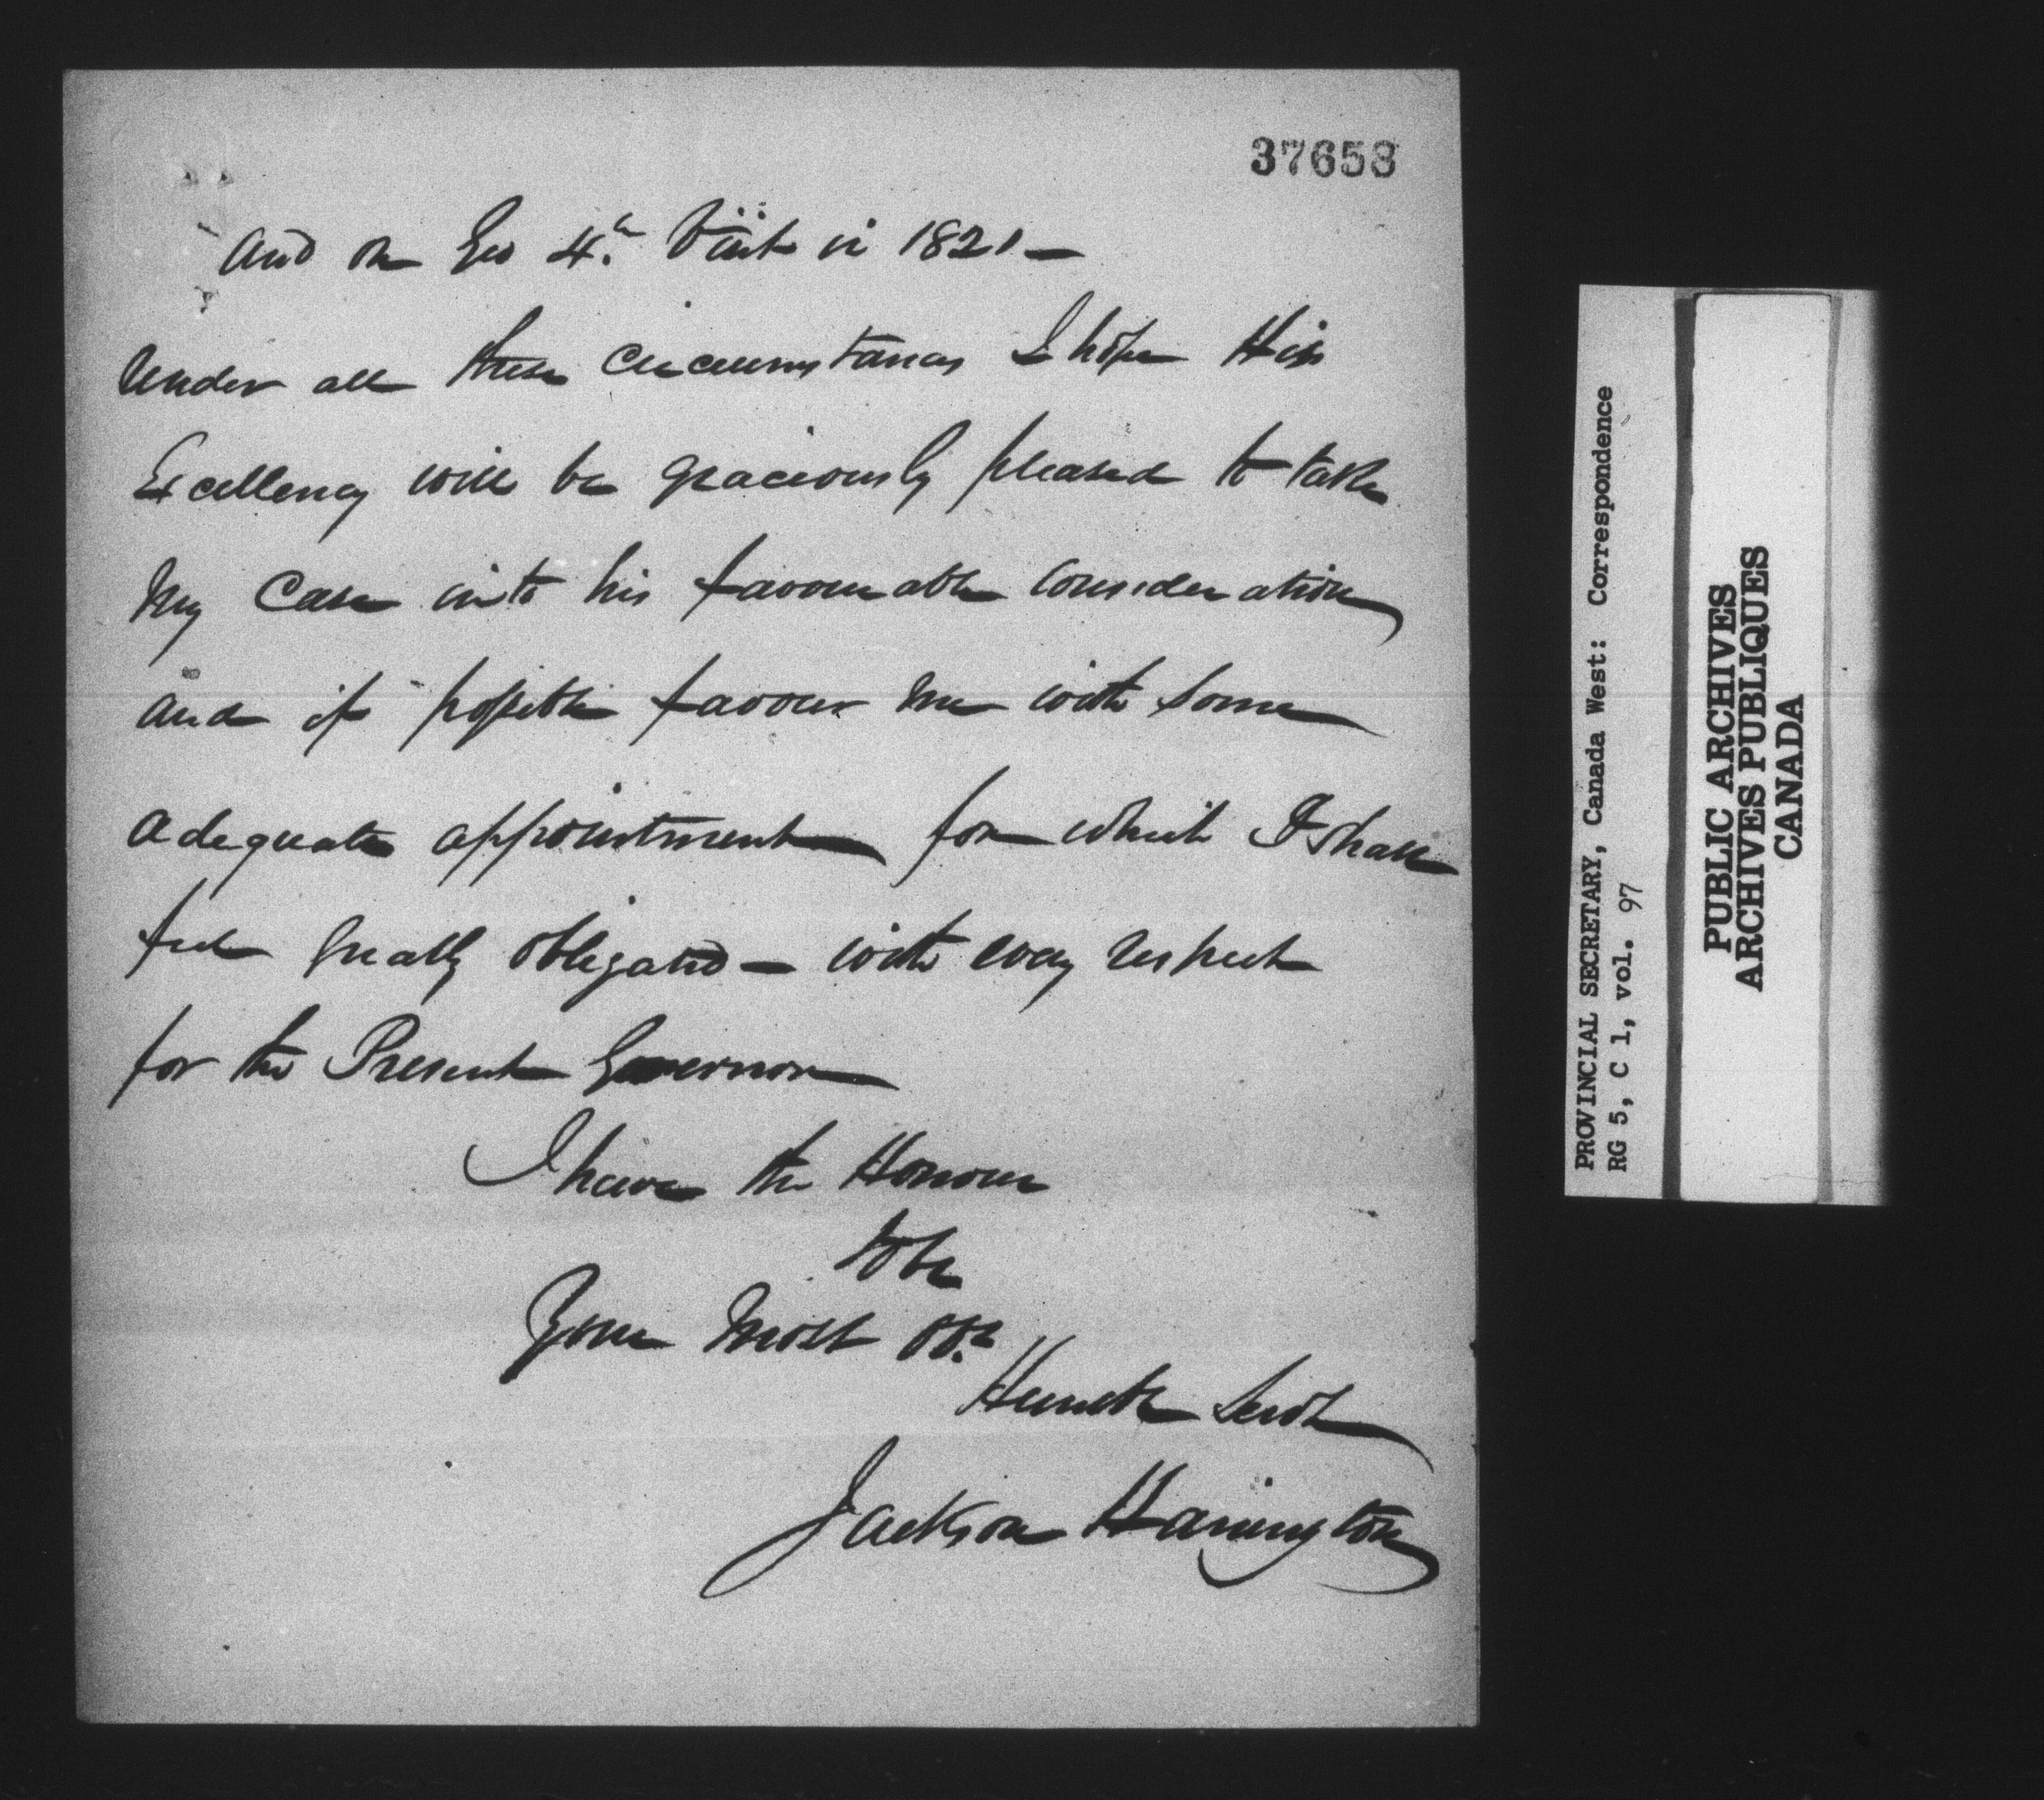 37658
and on Geo 4.th Visit in 1821 —
Under all these circumstances I hope His
Excellency will be graciously pleased to take
my case into his favourable consideration
and if possible favour me with some
adequate appointment for which I shall
feel greatly obligated — with every respect
for the Present Governor
I have the Honour
to be
Your most Obt
Humble Servt
Jackson Harrington
PROVINCIAL SECRETARY, Canada West: Correspondence
RG 5, C 1, vol. 97
PUBLIC ARCHIVES
ARCHIVES PUBLIQUES
CANADA